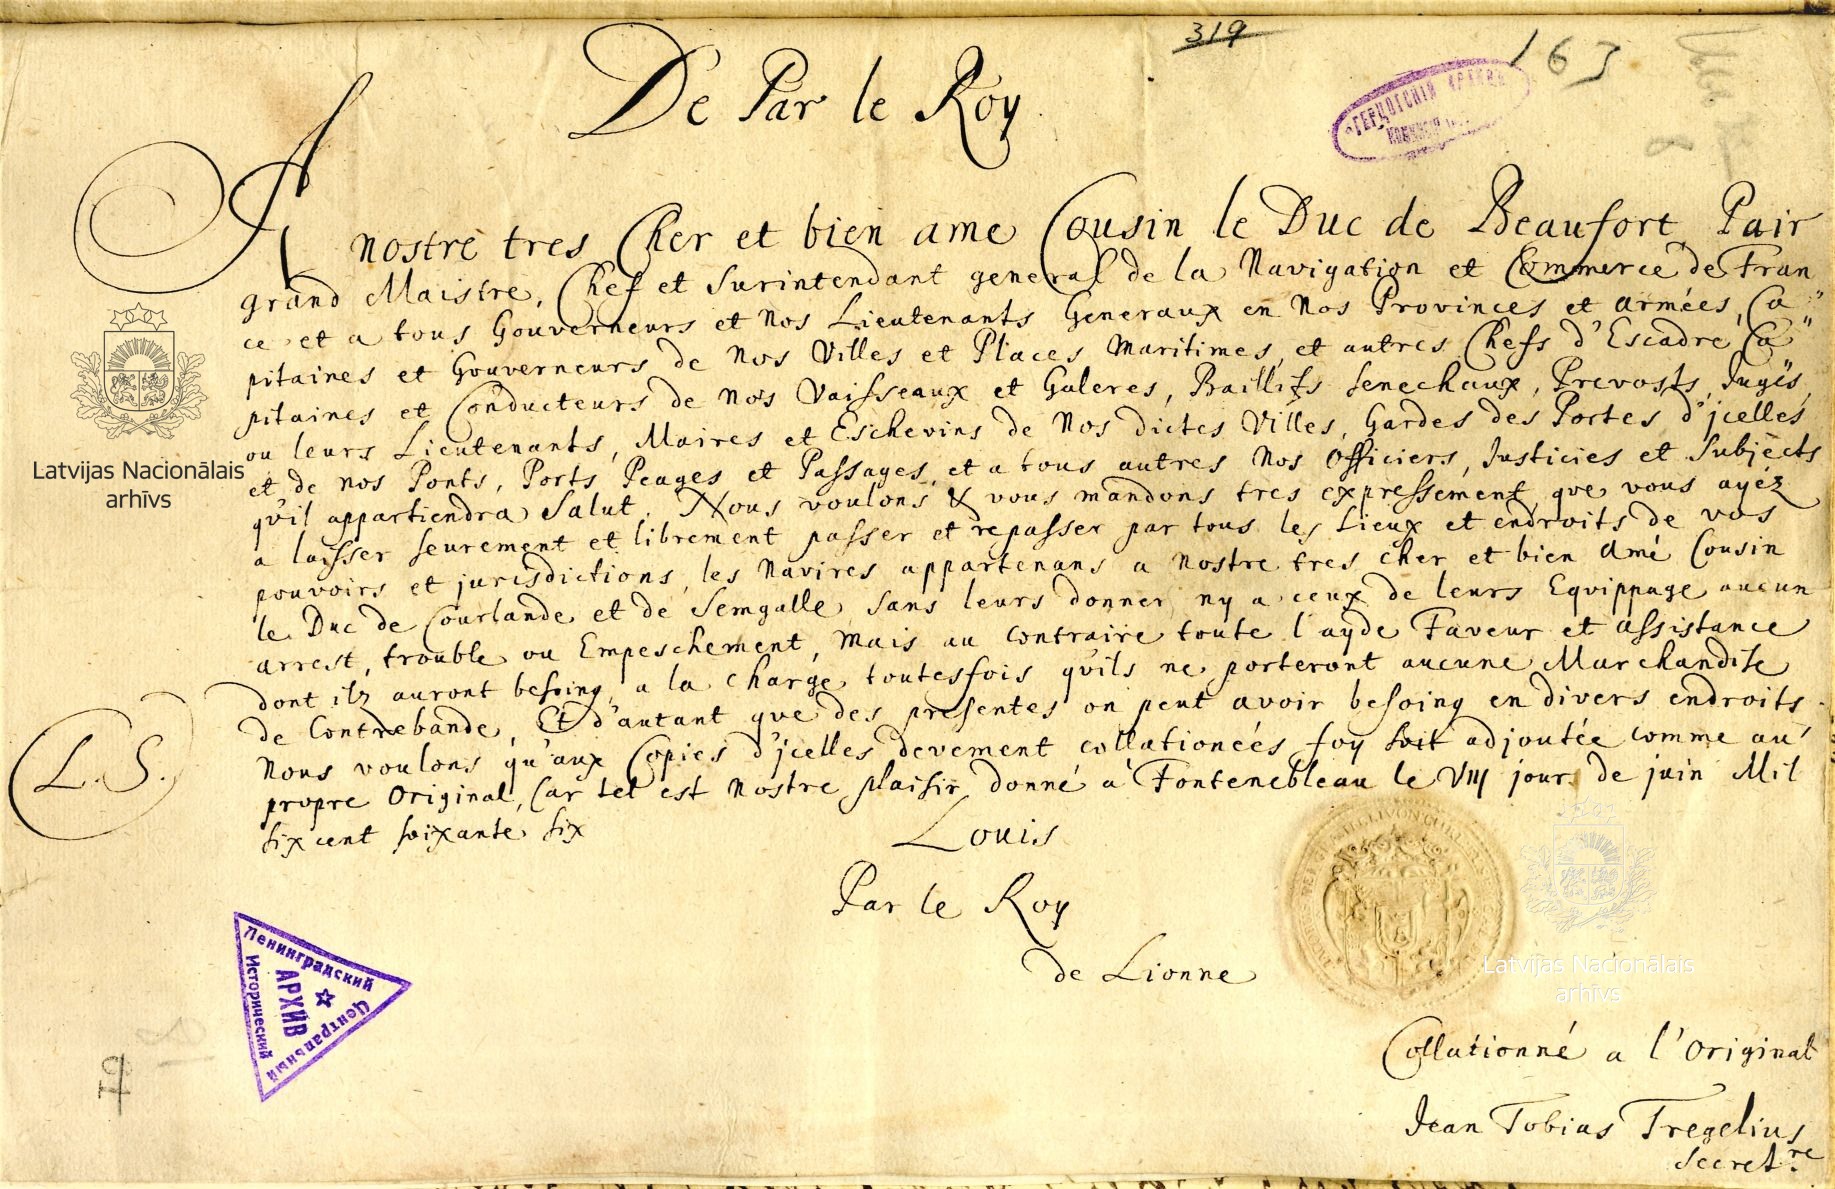 319
163
De Par le Roy
ГЕРЦОГСКІЙ АРХИВЪ
A nostre tres Cher et bien ame Cousin le Duc de Beaufort, Pair
grand Maistre, Chef et Surintendant general de la Navigation et Commerce de Fran
ce et a tous Gouverneurs et Nos Lieutenants Generaux en Nos Provinces et armées, Ca"
pitaines et Gouverneurs de Nos Villes et Places Maritimes, et autres Chefs d'Escadre, Ca"
pitaines et Conducteurs de nos Vaisseaux et Galeres, Baillifs Senechaux, Prevosts, Juges,
ou leurs Lieutenants, Maires et Eschevins de Nos dictes Villes, Gardes des Portes d'jcelles
et de nos Ponts, Ports, Peages et Passages, et a tous autres Nos Officiers, Justicies et Subjects
qu'il appartiendra Salut. Nous voulons & vous mandons tres expressement, que vous ayéz
a laisser seurement et librement passer et repasser par tous les Lieux et endroits de vos
pouvoirs et jurisdictions, les Navires appartenans a Nostre tres cher et bien Amé Cousin
le Duc de Courlande et de Semgalle, sans leurs donner, ny a ceux de leurs Equippage aucun
arrest, trouble ou Empeschement, Mais au contraire toute l'ayde Faveur et assistance
dont ilz auront besoing, a la charge toutesfois qu'ils ne porteront aucune Marchandise
de Contrebande, Et d'autant que des presentes on peut avoir besoing en divers endroits
Nous voulons qu'aux Copies d'jcelles devement collationeés foy soit adjoutée comme au
propre Original, Car tel est Nostre plaisir, donné a Fontenebleau le VIII jour de juin Mil
six cent soixante six
L. S.
Louis
Par le Roy
de Lionne
Collationné a l'Original
Jean Tobias Fregelius
Secret.re
Ленинградский
Центральный
Исторический
АРХИВ
Latvijas Nacionālais
arhīvs
Latvijas Nacionālais
arhīvs